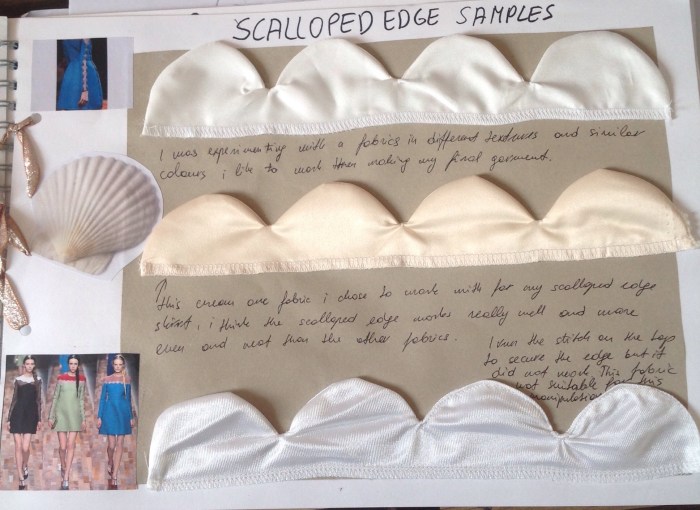 SCALLOPED EDGE SAMPLES
I was experimenting with a fabrics in different textures and similar
colours i like to work then making my final garment.
This cream one fabric i chose to work with for my scalloped edge
skirt, i think the scalloped edge works really well and more
even and neat than the other fabrics.
I run the stitch on the top
to secure the edge but it
did not work. This fabric
not suitable for this
manipulation